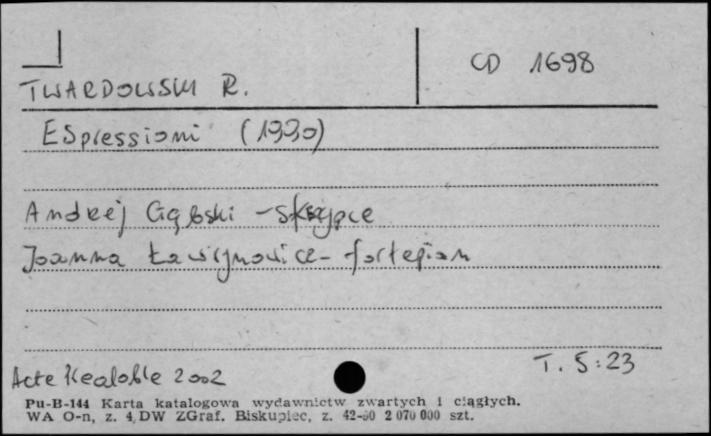 CD 1698
TWARDOWSKI R.
ESpressioni (1990)
Andrzej Gębski - skrzypce
Joanna Ławrynowicz - fortepian
T. 5:23
Acte Préalable 2002
Pu-B-144 Karta katalogowa wydawnictw zwartych i ciągłych.
WA O-n, z. 4, DW ZGraf. Biskupiec, z. 42-90 2 070 000 szt.